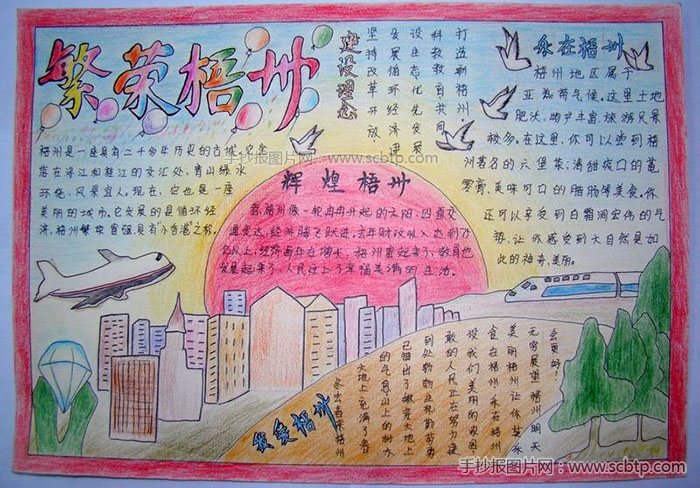 繁荣梧州
梧州是一座具有二千多年历史的古城。它坐
落在浔江和桂江的交汇处，青山绿水
环绕，风景宜人。现在，它也是一座
美丽的城市。它发展的是循环经
济，梧州繁荣富强，具有“小香港”之称。
建设理念
打造新梧州
科教教育共同
设生态优先
发展循环经济
坚持改革开放！
永在梧州
梧州地区属于
亚热带气候。这里土地
肥沃，物产丰富，旅游风景
较多。在这里，你可以尝到梧
州著名的六堡茶；清甜爽口的
美味可口的
还可以享受到白霜涧宏伟的气
势，让你感受到大自然是如
此的神奇、美丽。
辉煌梧州
看，梧州像一轮冉冉升起的太阳，四面交
通发达，经济腾飞跃进。去年财政收入达到
亿以上，经济每年在增长。梧州富起来了，教育也
发展起来了，人民过上了幸福美满的生活。
手抄报图片网：www.scbtp.com
我爱梧州
会更好！
无穷展望梧州明天
美丽梧州让你安乐
食在梧州 永在梧州
设我们美丽的家园
敢的人民正在努力建
到处物物
已抽出了嫩芽 大地上
的气息 山上的树木
大地上充满了春
春来梧州
手抄报图片网：www.scbtp.com